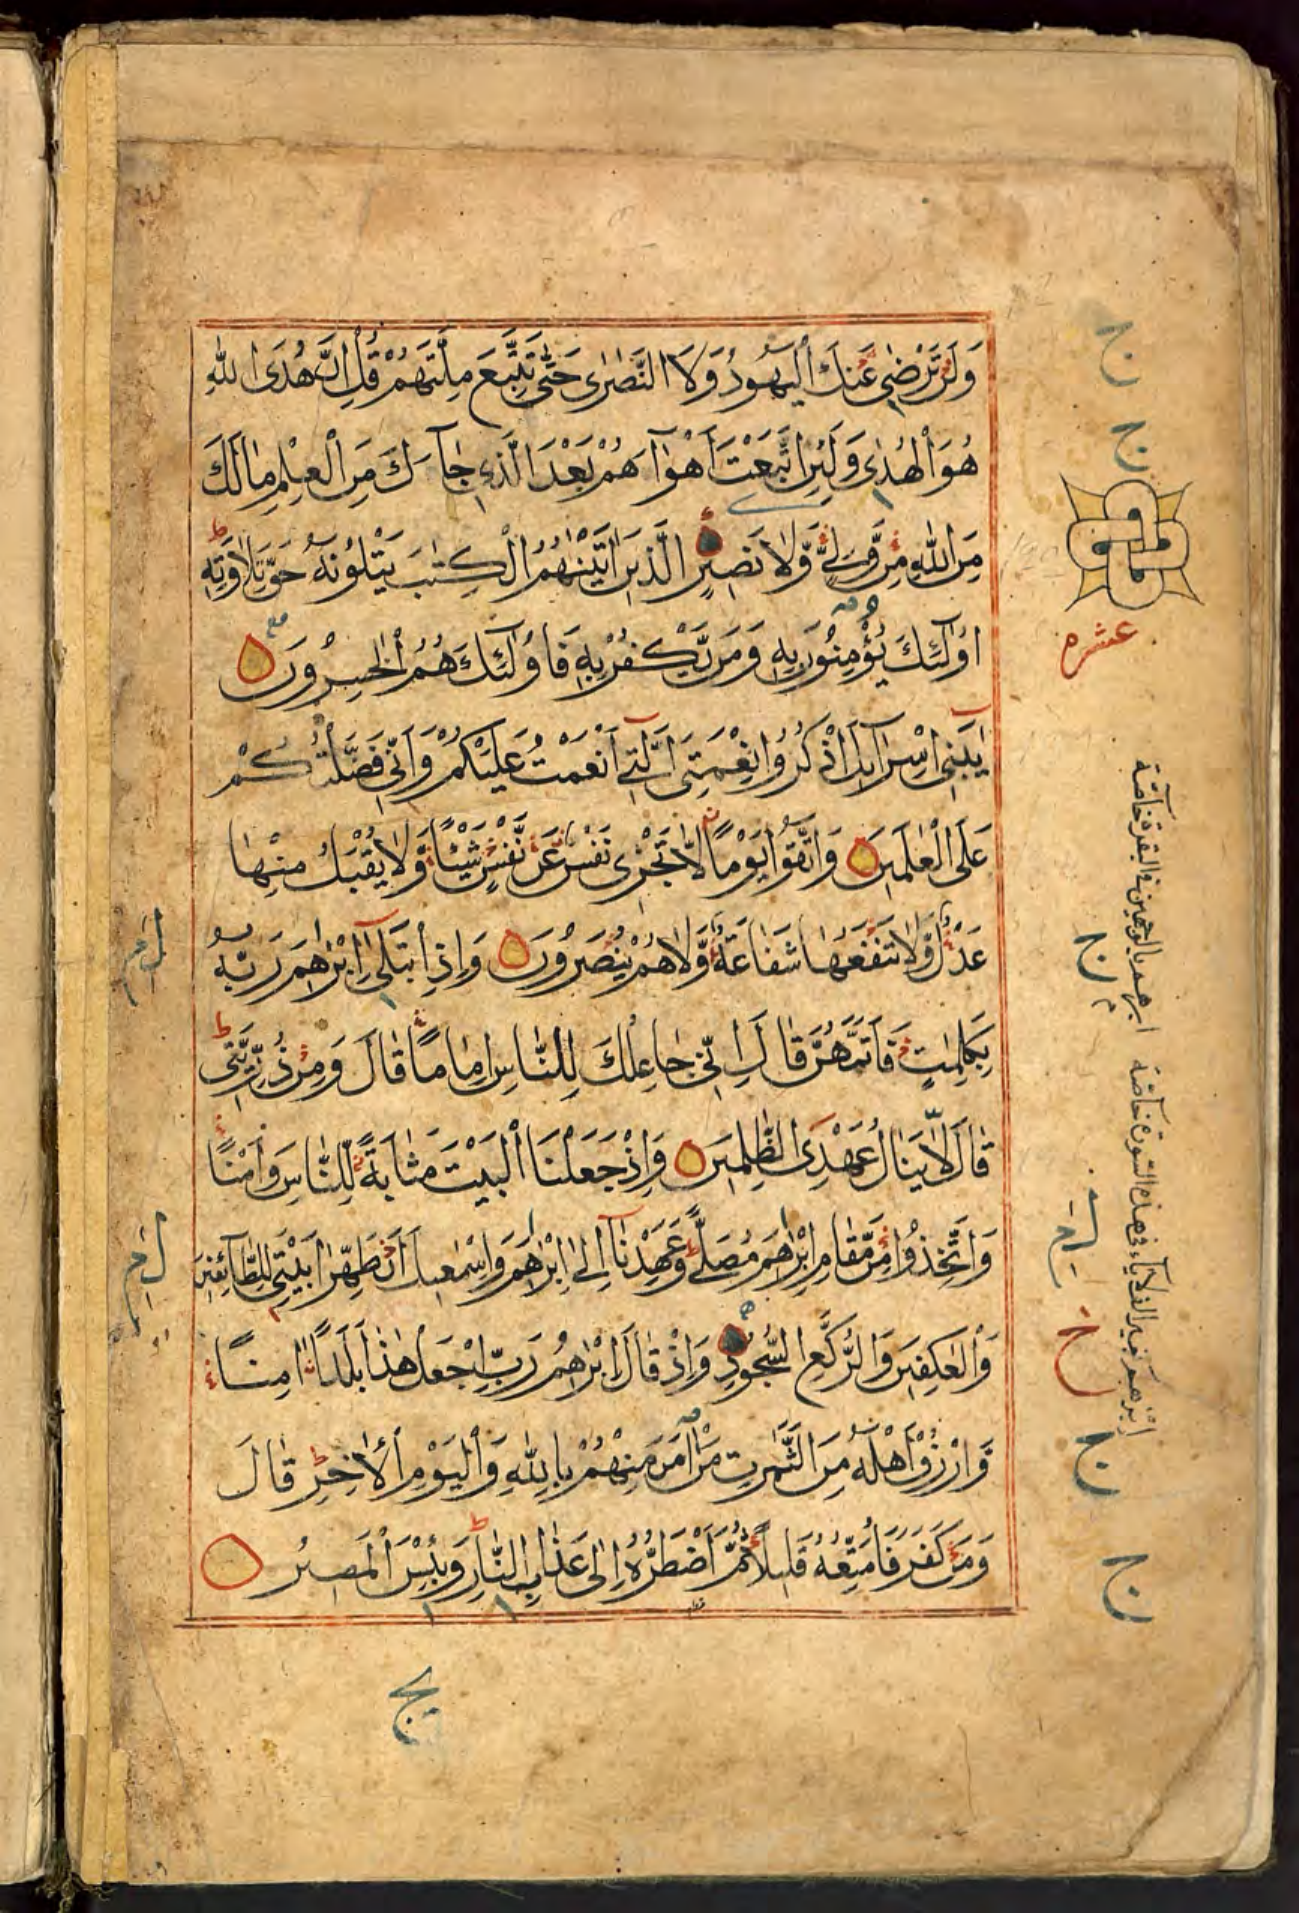 وَلَنْ تَرْضٰى عَنْكَ الْيَهُودُ وَلَا النَّصٰرٰى حَتّٰى تَتَّبِعَ مِلَّتَهُمْ قُلْ اِنَّ هُدَى اللّٰهِ
هُوَ الْهُدٰى وَلَئِنِ اتَّبَعْتَ اَهْوَآءَهُمْ بَعْدَ الَّذِى جَآءَكَ مِنَ الْعِلْمِ مَالَكَ
مِنَ اللّٰهِ مِنْ وَّلِىٍّ وَّلَا نَصِيرٍ الَّذِينَ اٰتَيْنٰهُمُ الْكِتٰبَ يَتْلُونَهُ حَقَّ تِلَاوَتِهِ
اُولٰٓئِكَ يُؤْمِنُونَ بِهِ وَمَنْ يَّكْفُرْ بِهِ فَاُولٰٓئِكَ هُمُ الْخٰسِرُونَ
يٰبَنِى اِسْرَآئِلَ اذْكُرُوا نِعْمَتِىَ الَّتِى اَنْعَمْتُ عَلَيْكُمْ وَاَنِّى فَضَّلْتُكُمْ
عَلَى الْعٰلَمِينَ وَاتَّقُوا يَوْمًا لَّا تَجْزِى نَفْسٌ عَنْ نَّفْسٍ شَيْئًا وَّلَا يُقْبَلُ مِنْهَا
عَدْلٌ وَّلَا تَنْفَعُهَا شَفَاعَةٌ وَّلَا هُمْ يُنْصَرُونَ وَاِذِ ابْتَلٰى اِبْرٰهٖمَ رَبُّهُ
بِكَلِمٰتٍ فَاَتَمَّهُنَّ قَالَ اِنِّى جَاعِلُكَ لِلنَّاسِ اِمَامًا قَالَ وَمِنْ ذُرِّيَّتِى
قَالَ لَا يَنَالُ عَهْدِى الظّٰلِمِينَ وَاِذْ جَعَلْنَا الْبَيْتَ مَثَابَةً لِّلنَّاسِ وَاَمْنًا
وَاتَّخِذُوا مِنْ مَّقَامِ اِبْرٰهٖمَ مُصَلًّى وَعَهِدْنَآ اِلٰى اِبْرٰهٖمَ وَاِسْمٰعِيلَ اَنْ طَهِّرَا بَيْتِىَ لِلطَّآئِفِينَ
وَالْعٰكِفِينَ وَالرُّكَّعِ السُّجُودِ وَاِذْ قَالَ اِبْرٰهٖمُ رَبِّ اجْعَلْ هٰذَا بَلَدًا اٰمِنًا
وَّارْزُقْ اَهْلَهُ مِنَ الثَّمَرٰتِ مَنْ اٰمَنَ مِنْهُمْ بِاللّٰهِ وَالْيَوْمِ الْاٰخِرِ قَالَ
وَمَنْ كَفَرَ فَاُمَتِّعُهُ قَلِيلًا ثُمَّ اَضْطَرُّهُ اِلٰى عَذَابِ النَّارِ وَبِئْسَ الْمَصِيرُ
عشره